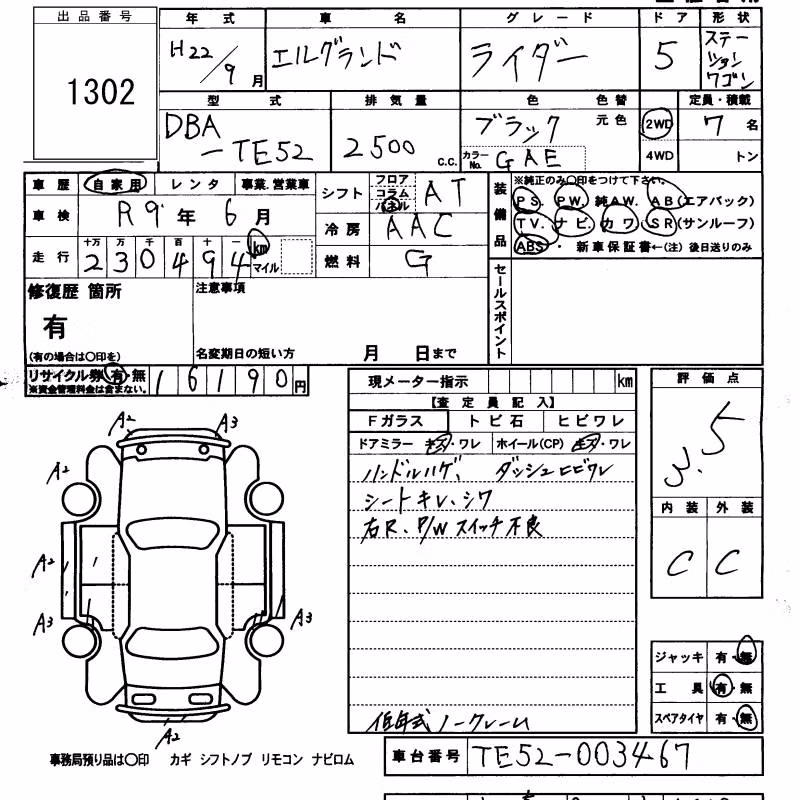 出品番号
1302
年式 車名 グレード ドア 形状
H22/9月 エルグランド ライダー 5 ステーションワゴン
型式 排気量 色 色替 定員・積載
DBA-TE52 2500 C.C. ブラック 元色 2WD 7名
カラーNo. GAE 4WD トン
車歴 自家用 レンタ 事業.営業車
車検 R9年 6月
走行 十万 万 千 百 十 一
230494 km マイル
シフト フロア コラム パネル AT
冷房 AAC
燃料 G
装備品
※純正のみ〇印をつけて下さい。
PS. PW. 純AW. AB(エアバック)
TV. ナビ. カワ. SR(サンルーフ)
ABS・ 新車保証書←(注)後日送りのみ
修復歴 箇所
有
(有の場合は〇印を)
注意事項
名変期日の短い方 月 日まで
セールスポイント
リサイクル券 有・無 16190円
※資金管理料金は含まない。
現メーター指示 km
【査定員記入】
Fガラス トビ石 ヒビワレ
ドアミラー キズ・ワレ ホイール(CP) キズ・ワレ
ハンドルハゲ、 ダッシュヒビワレ
シートキレ、シワ
右R、P/Wスイッチ不良
低年式 ノークレーム
評価点
3.5
内装 外装
C C
A2 A3
A2
A2
A3 A3
A2
ジャッキ 有・無
工具 有・無
スペアタイヤ 有・無
事務局預り品は〇印 カギ シフトノブ リモコン ナビロム
車台番号 TE52-003467